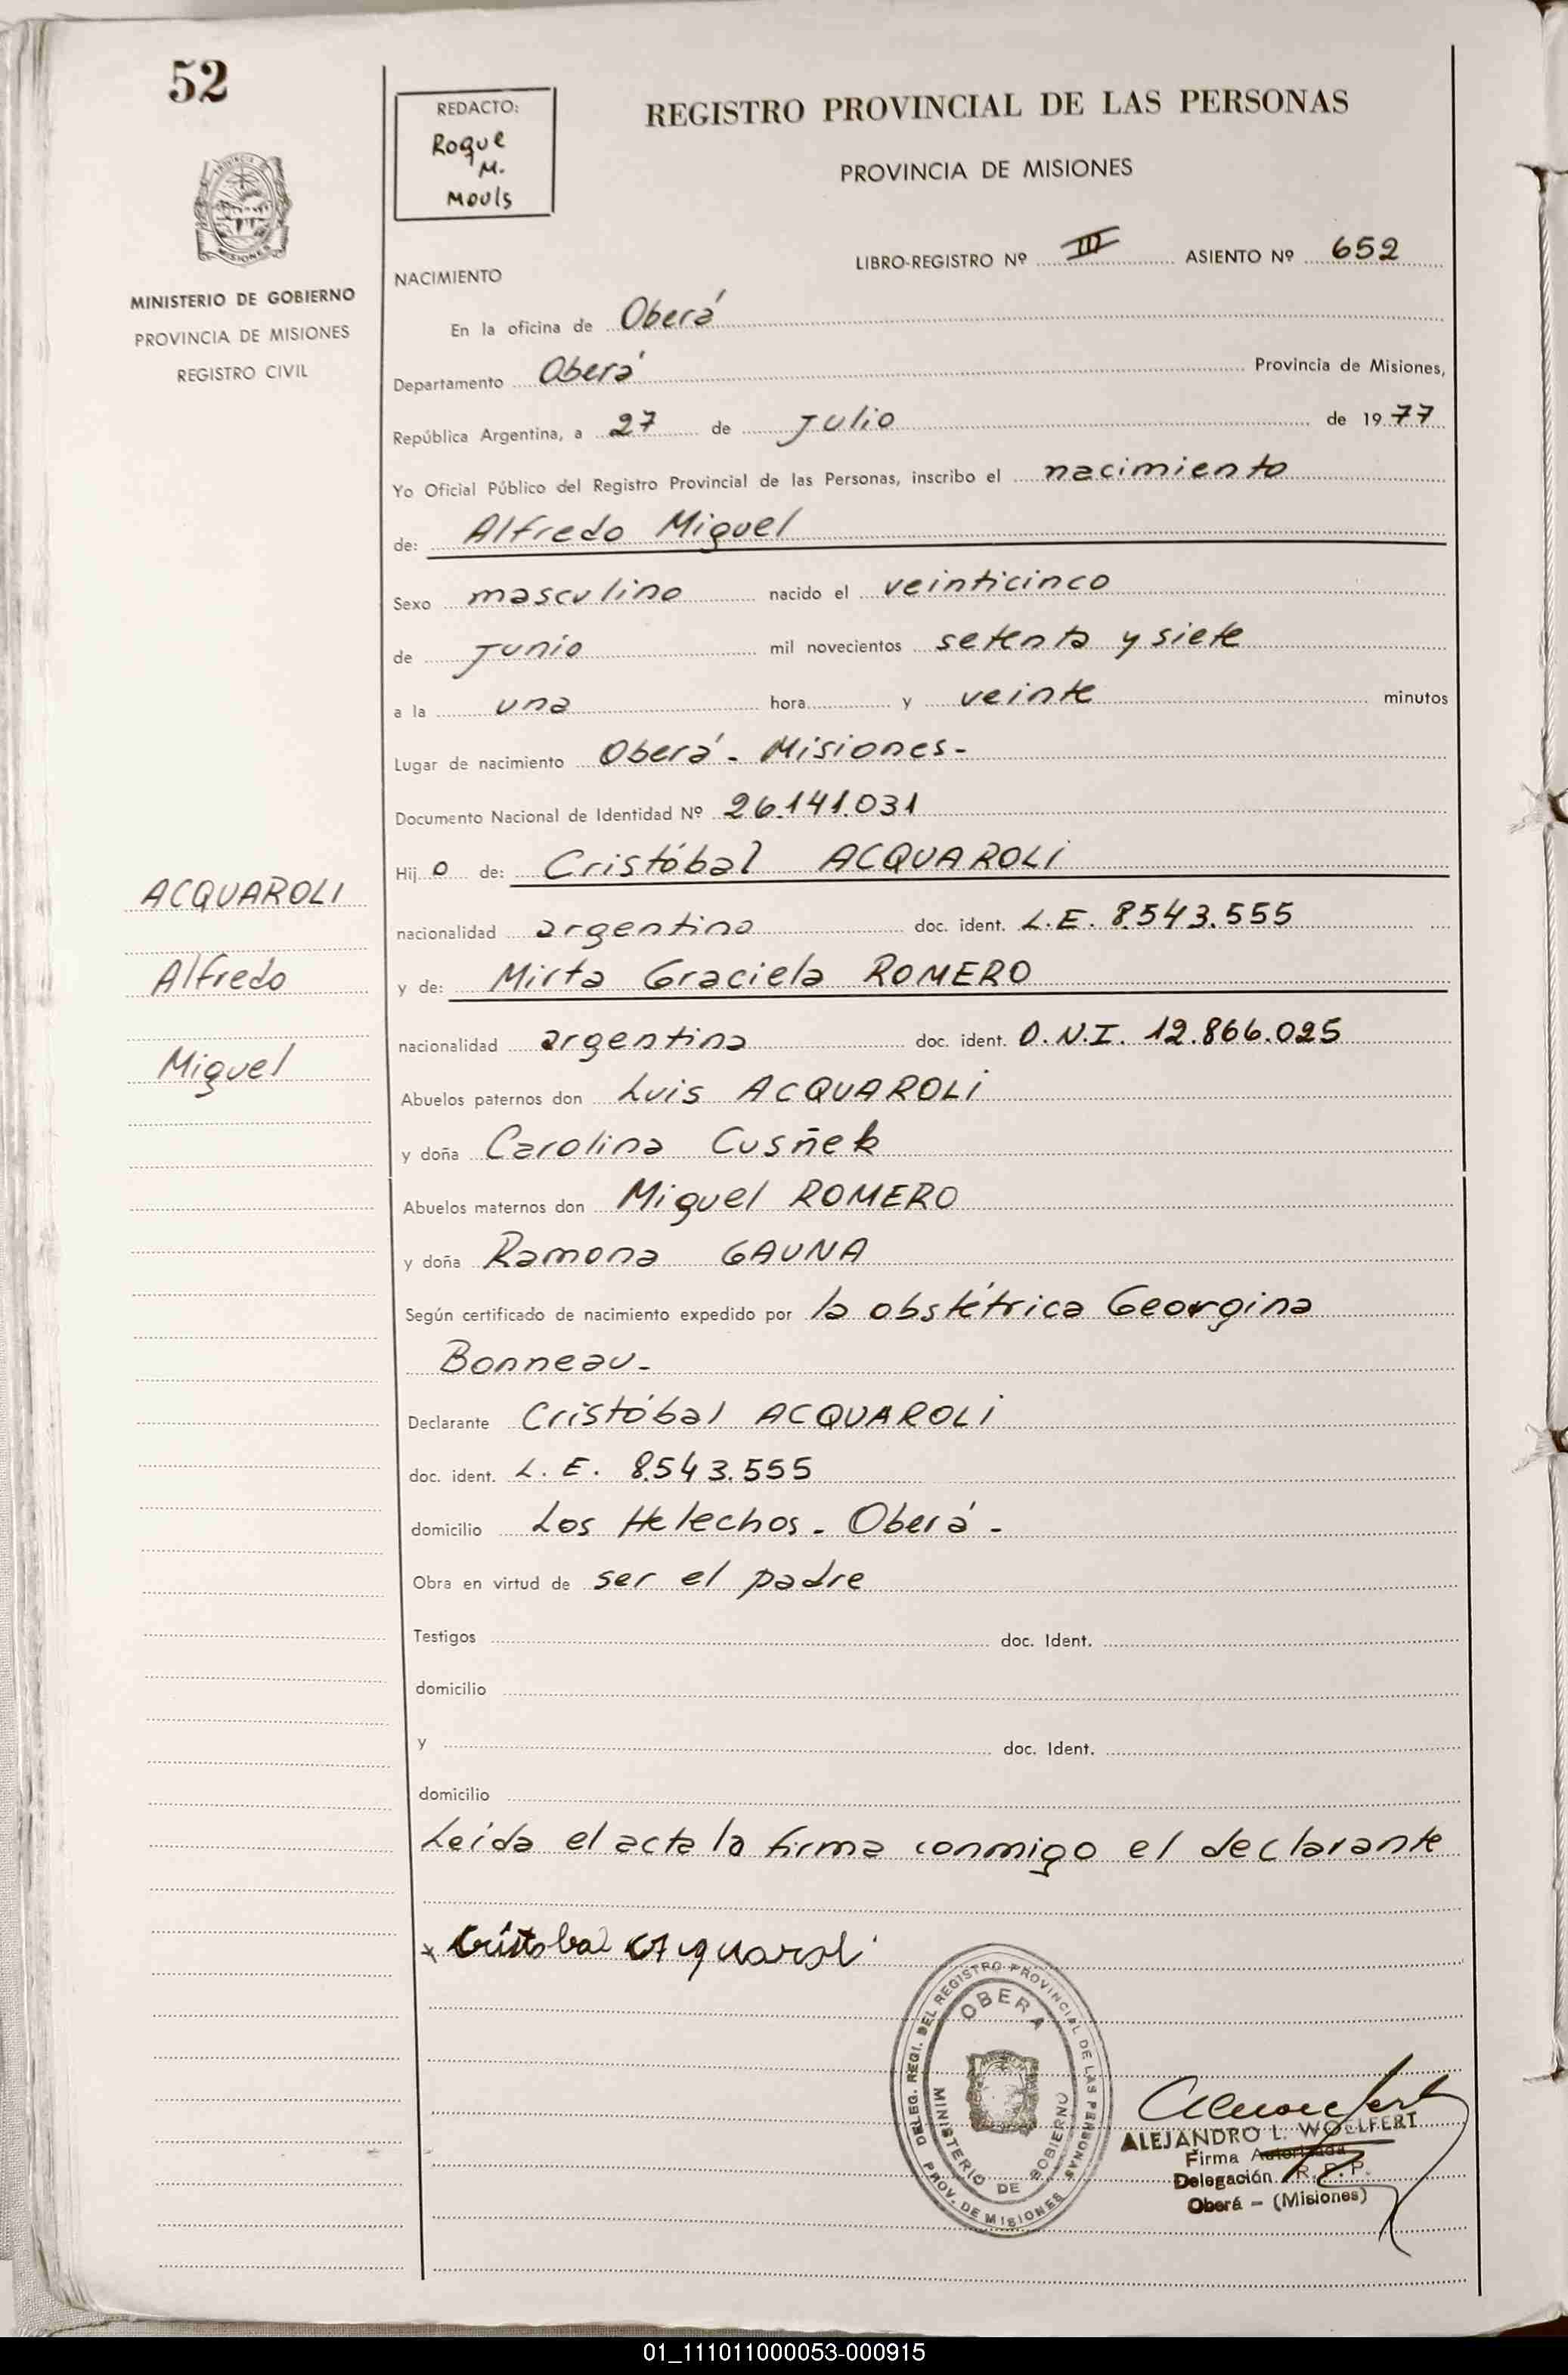 52
REDACTO:
Roque
M.
Mouls
REGISTRO PROVINCIAL DE LAS PERSONAS
PROVINCIA DE MISIONES
MISIONES
MINISTERIO DE GOBIERNO
PROVINCIA DE MISIONES
REGISTRO CIVIL
LIBRO-REGISTRO Nº III ASIENTO Nº 652
NACIMIENTO
En la oficina de Oberá
Departamento Oberá Provincia de Misiones,
República Argentina, a 27 de Julio de 1977
Yo Oficial Público del Registro Provincial de las Personas, inscribo el nacimiento
de: Alfredo Miguel
Sexo masculino nacido el veinticinco
de Junio mil novecientos setenta y siete
a la una hora y veinte minutos
Lugar de nacimiento Oberá - Misiones-
Documento Nacional de Identidad Nº 26.141.031
Hijo de: Cristóbal ACQUAROLI
nacionalidad argentina doc. ident. L.E. 8.543.555
y de: Mirta Graciela ROMERO
nacionalidad argentina doc. ident. D.N.I. 12.866.025
Abuelos paternos don Luis ACQUAROLI
y doña Carolina Cusñek
Abuelos maternos don Miguel ROMERO
y doña Ramona GAUNA
Según certificado de nacimiento expedido por la obstétrica Georgina
Bonneau-
Declarante Cristóbal ACQUAROLI
doc. ident. L. E. 8.543.555
domicilio Los Helechos - Oberá -
Obra en virtud de ser el padre
Testigos doc. Ident.
domicilio
y doc. Ident.
domicilio
Leída el acta la firma conmigo el declarante
ACQUAROLI
Alfredo
Miguel
x Cristobal Acquaroli
DELEG. REGI. DEL REGISTRO PROVINCIAL DE LAS PERSONAS
OBERA
MINISTERIO DE GOBIERNO
PROV. DE MISIONES
ALEJANDRO L. WOELFERT
Firma Autorizada
Delegación R. P. P.
Oberá - (Misiones)
01_111011000053-000915